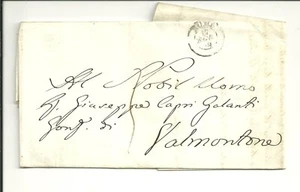 ROMA
Al Nobil Uomo
Giuseppe Capri Galanti
di
Valmontone